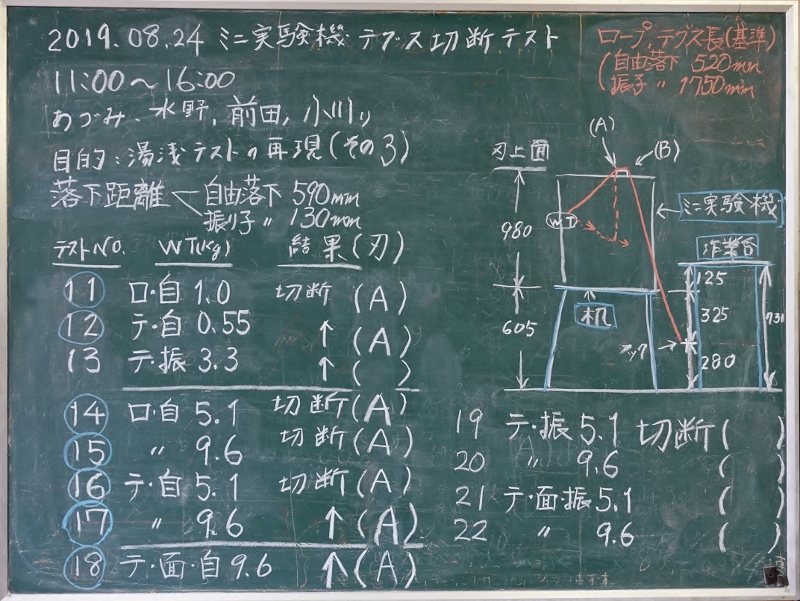 2019.08.24 ミニ実験機 テグス切断テスト
11:00～16:00
あづみ、水野、前田、小川
目的:湯浅テストの再現(その3)
落下距離 自由落下 590mm
振り子 〃 130mm
ロープ,テグス長(基準)
自由落下 520mm
振子 〃 1750mm
テストNo. WT(Kg) 結果(刃)
11 ロ・自 1.0 切断 (A)
12 テ・自 0.55 ↑ (A)
13 テ・振 3.3 ↑ ( )
14 ロ・自 5.1 切断 (A)
15 〃 9.6 切断 (A)
16 テ・自 5.1 切断 (A)
17 〃 9.6 ↑ (A)
18 テ・面・自 9.6 ↑ (A)
(A)
(B)
刃上面
WT
ミニ実験機
980
作業台
125
机
325
730
605
フック
280
19 テ・振 5.1 切断 ( )
20 〃 9.6 ( )
21 テ・面・振 5.1 ( )
22 〃 9.6 ( )